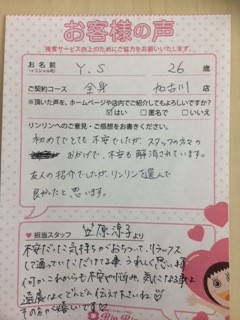 お客様の声
接客サービス向上のためにご協力をお願いいたします。
お名前
(イニシャル可)
Y.S
26
歳
ご契約コース
全身
加古川
店
※頂いた声を、ホームページや店内でご紹介してもよろしいですか?
はい
□匿名で
□いいえ
リンリンへのご意見・ご感想をお書きください。
初めてでとても不安でしたが、スタッフの方々の
おかげで、不安も解消されています。
友人の紹介でしたが、リンリンを選んで
良かったと思います。
担当スタッフ
笠原淳子
より
不安だった気持ちがおちついて、リラックス
して通っていただけてる事、うれしく思います
何かこれからも不安や悩み、気になる事は
遠慮なくどんどん伝えてくださいね
その方が嬉しいです